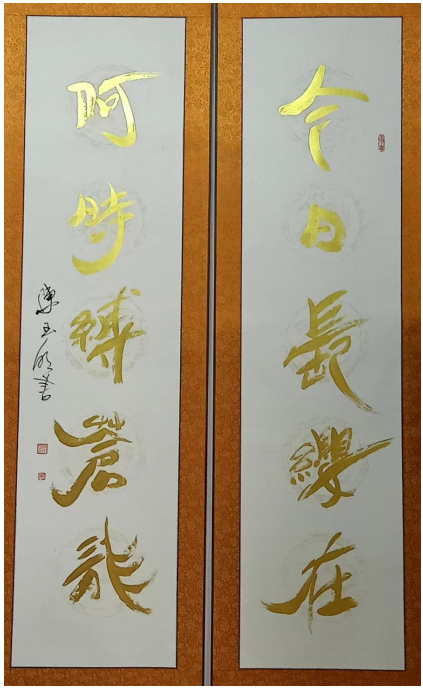 今日長纓在
呵時縛蒼龍
陳玉明書